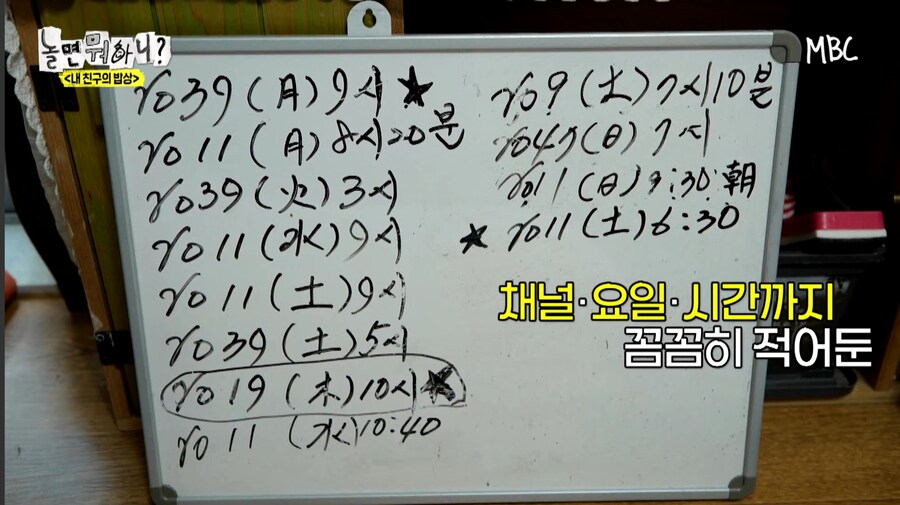 놀면 뭐하니?
<내 친구의 밥상>
MBC
No 39 (月) 9시 ★
No 11 (月) 8시 20분
No 39 (火) 3시
No 11 (水) 9시
No 11 (土) 9시
No 39 (土) 5시
No 19 (木) 10시 ★
No 11 (水) 10:40
No 9 (土) 7시 10분
No 47 (日) 7시
No 11 (日) 9:30 朝
★ No 11 (土) 6:30
채널·요일·시간까지
꼼꼼히 적어둔